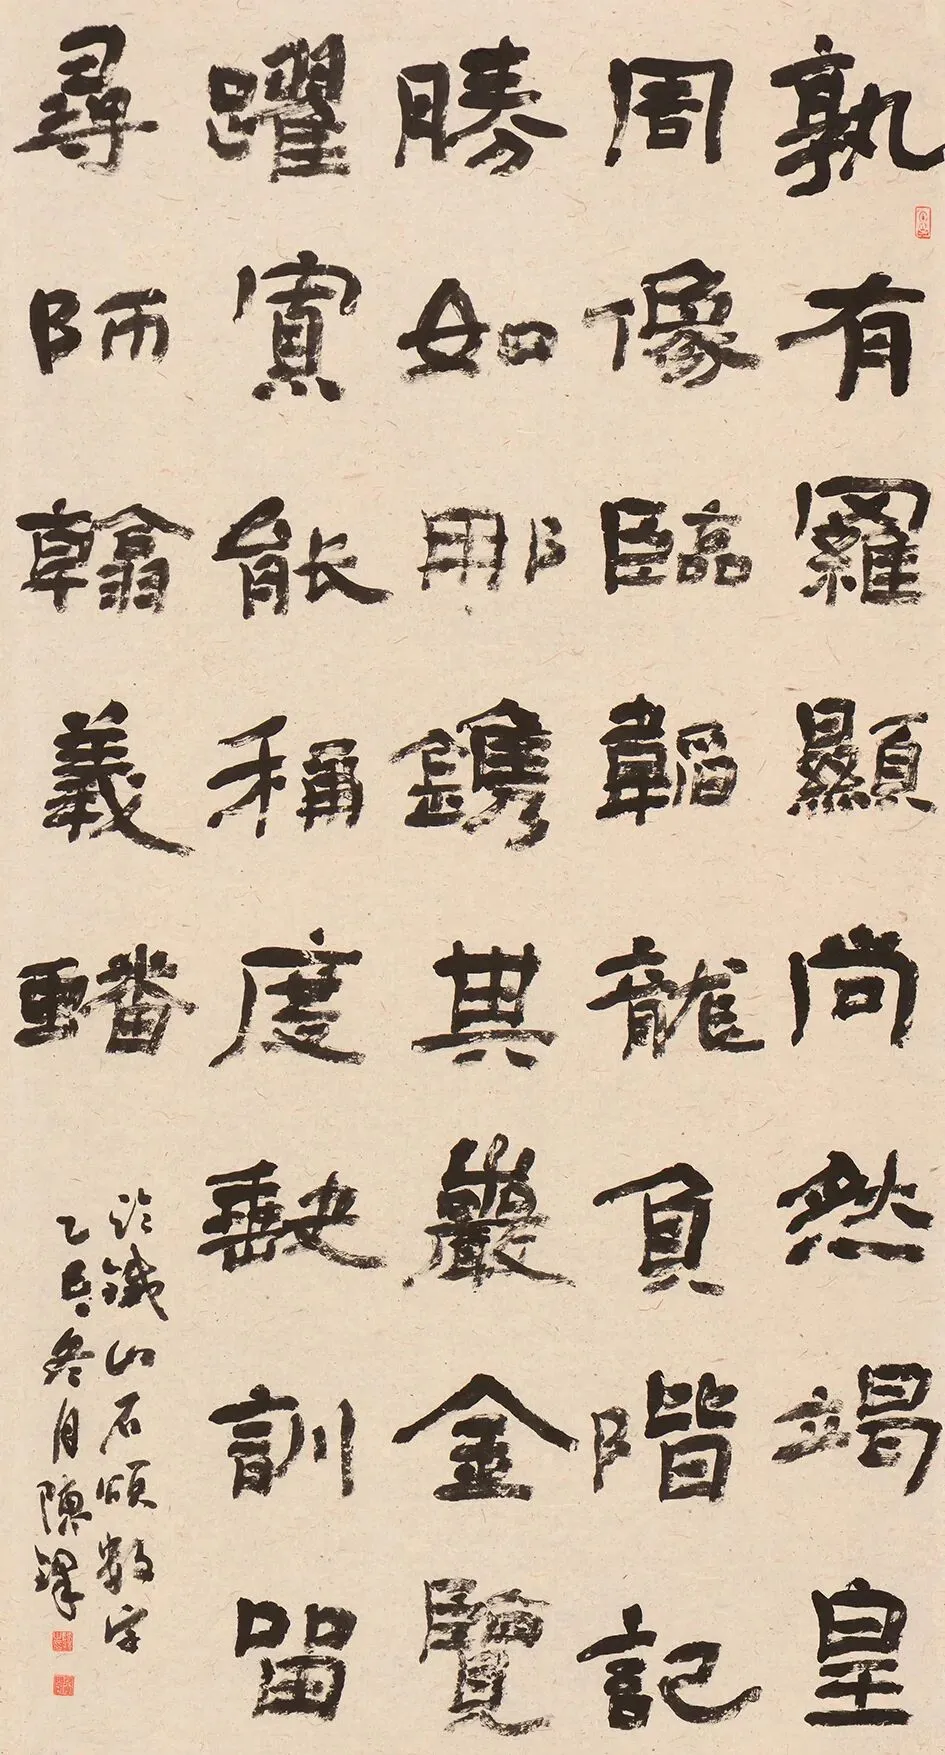 孰有羅顯尚然竭皇
周像臨韜龍負階記
勝如那鐫其嚴金覽
躍能稱度訓留
尋師翰義蟠
臨鐵山石頌數字
乙巳冬月陳鐸